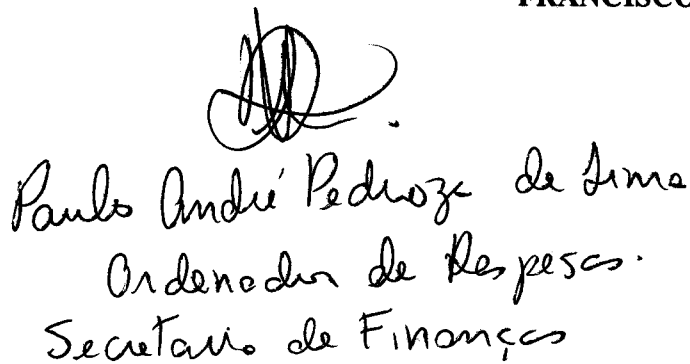 FRANCISCO
Paulo André Pedroza de Lima
Ordenador de Despesas.
Secretario de Finanças